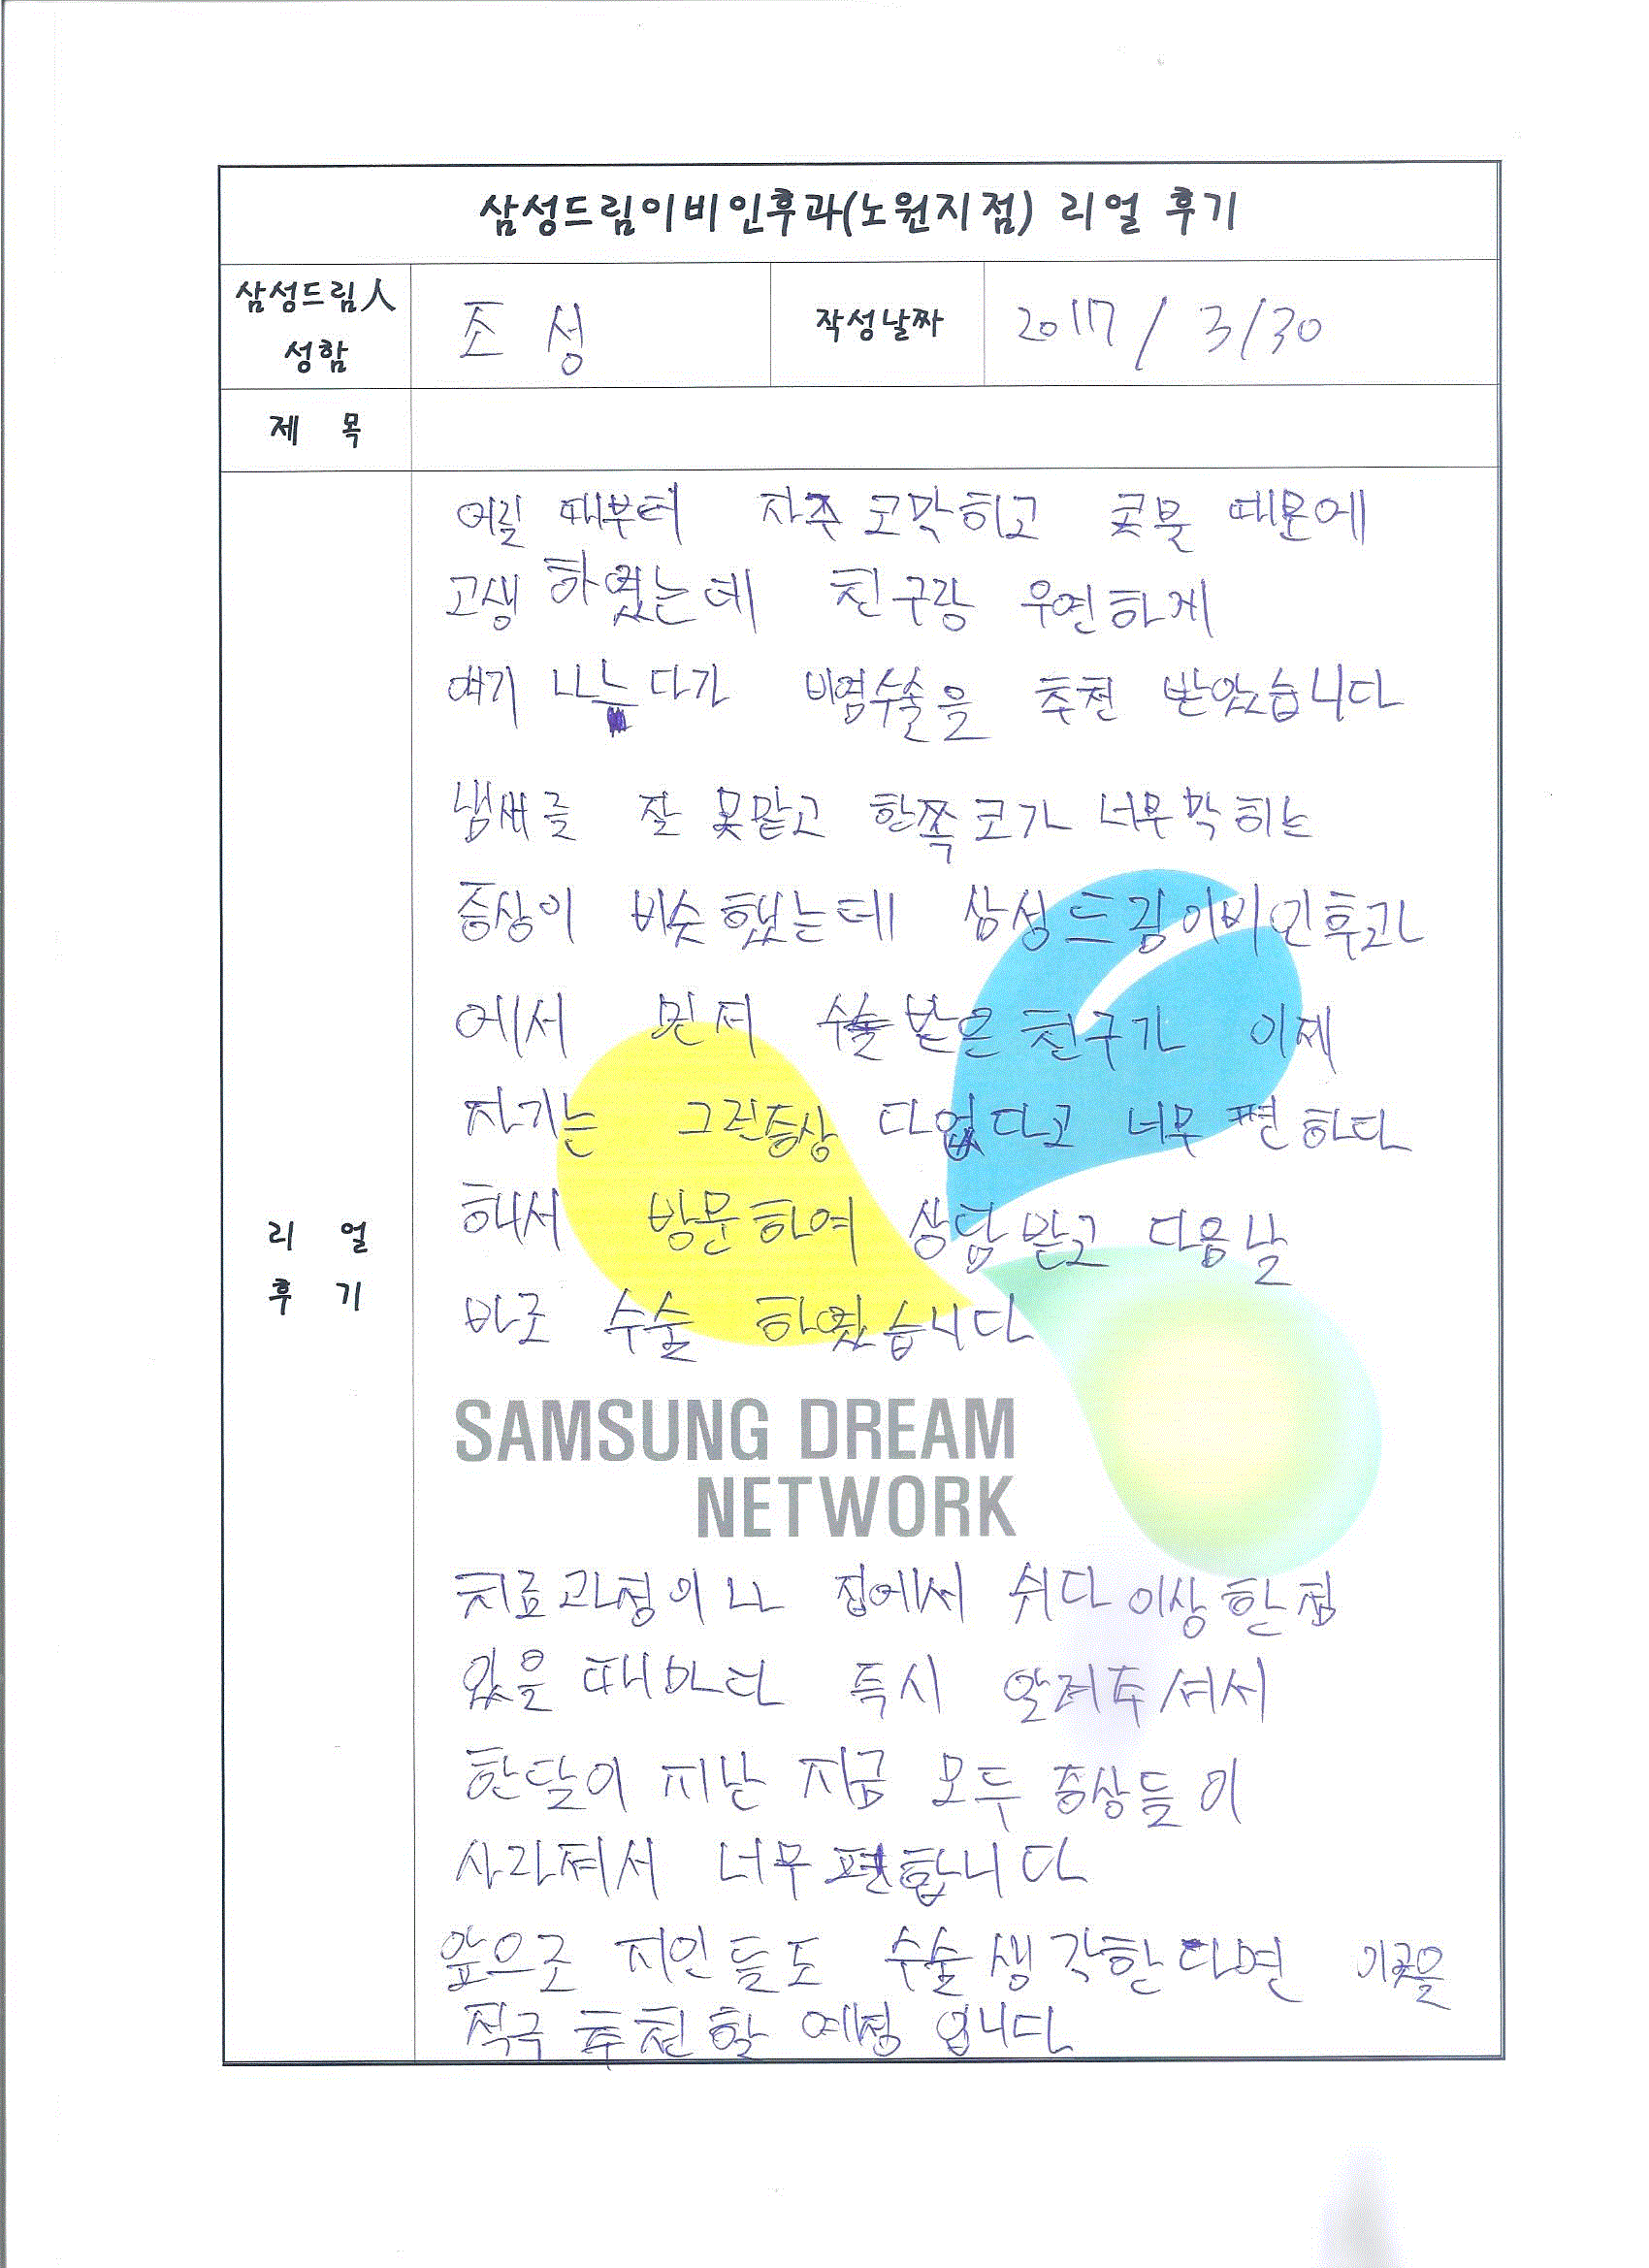 삼성드림이비인후과(노원지점) 리얼 후기
삼성드림人 성함
조 성
작성날짜
2017 / 3/30
제 목
리 얼 후 기
어릴 때부터 자주 코막히고 콧물 때문에
고생 하였는데 친구랑 우연하게
얘기 나누다가 비염수술을 추천 받았습니다
냄새를 잘 못맡고 한쪽코가 너무막히는
증상이 비슷했는데 삼성드림이비인후과
에서 먼저 수술받은 친구가 이제
자기는 그런증상 다없다고 너무 편하다
해서 방문하여 상담받고 다음날
바로 수술 하였습니다
SAMSUNG DREAM
NETWORK
치료과정이나 집에서 쉬다 이상한점
있을 때마다 즉시 알려주셔서
한달이 지난 지금 모두 증상들이
사라져서 너무 편합니다
앞으로 지인들도 수술생각한다면 이곳을
적극 추천할 예정 입니다